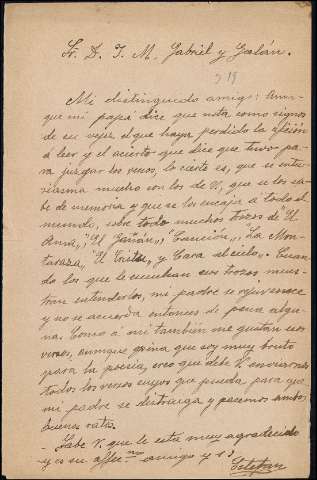 Sr. D. J. M. Gabriel y Galán.
Mi distinguido amigo: Aun-
que mi papá dice que nota como signos
de su vejez el que haya perdido la afición
á leer y el acierto que dice que tuvo pa-
ra juzgar los versos, lo cierto es, que se entu-
siasma mucho con los de V., que se los sa-
be de memoria y que se los encaja á todo el
mundo, sobre todo muchos trozos de "El
Ama", "El Gañán", "Canción", "La Mon-
taraza", "El Cristu", y Cara al cielo". Cuan-
do los que le escuchan esos trozos mues-
tran entenderlos, mi padre se rejuvenece
y no se acuerda entonces de pena algu-
na. Como á mi también me gustan sus
versos, aunque opina que soy muy bruto
para la poesía, creo que debe V. enviarnos
todos los versos suyos que pueda para que
mi padre se distraiga y pasemos ambos
buenos ratos.
Sabe V. que le está muy agradecido
y es su affmo. amigo y
Esteban